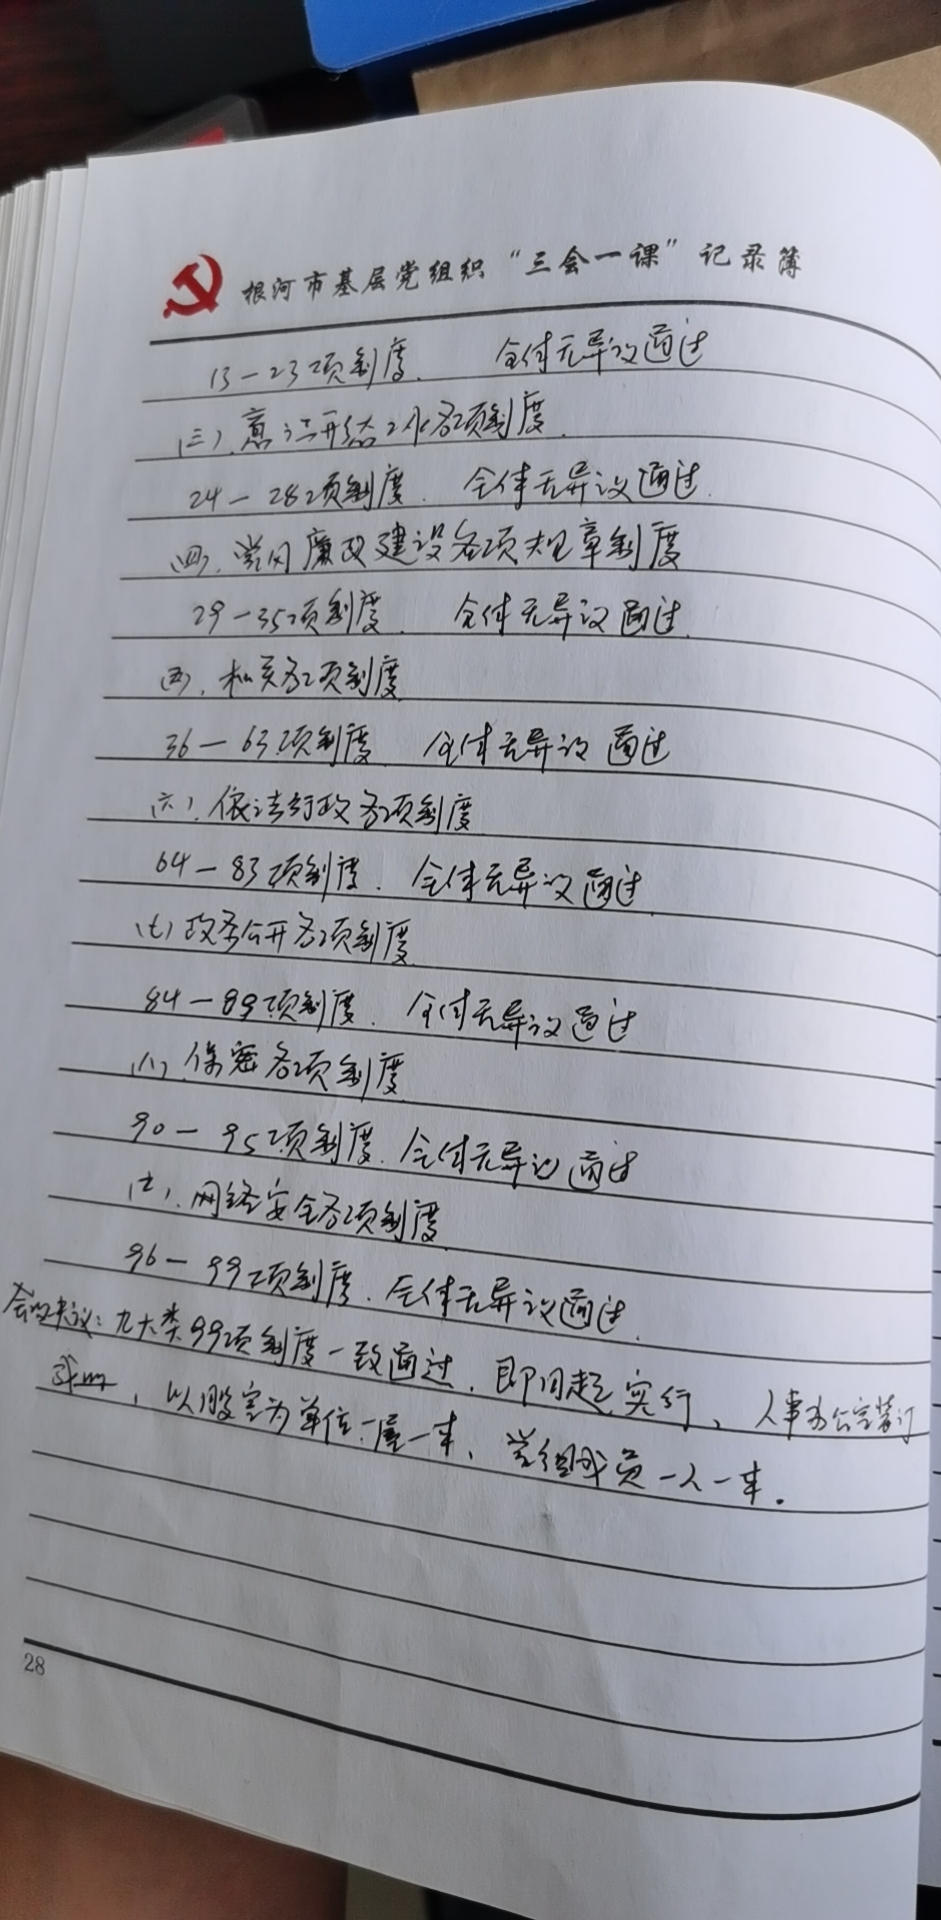 根河市基层党组织“三会一课”记录簿
13—23项制度. 全体无异议通过
(三).意识形态工作各项制度.
24—28项制度. 全体无异议通过.
(四).党风廉政建设各项规章制度
29—35项制度. 全体无异议通过.
(五).机关各项制度
36—63项制度. 全体无异议通过
(六).依法行政各项制度
64—83项制度. 全体无异议通过.
(七)政务公开各项制度
84—89项制度. 全体无异议通过
(八).保密各项制度
90—95项制度.全体无异议通过
(九).网络安全各项制度
96—99项制度.全体无异议通过.
会议决议:九大类99项制度一致通过,即日起实行,人事办公室装订
成册,以股室为单位一屋一本,党组成员一人一本.
28